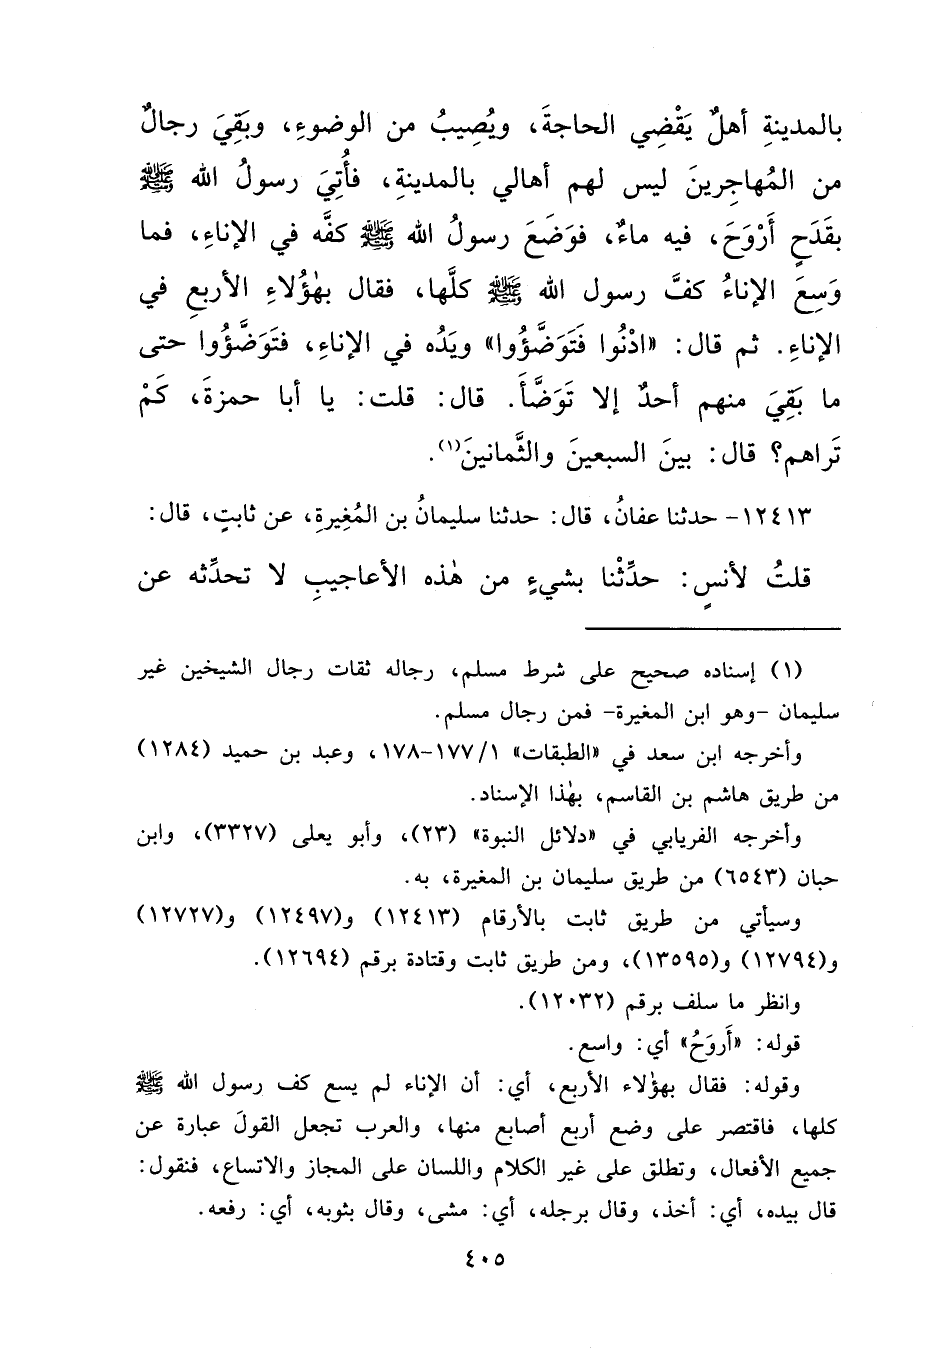 بالمدينةِ أهلٌ يَقْضِي الحاجةَ، ويُصِيبُ من الوضوءِ، وبَقِيَ رجالٌ
من المُهاجِرينَ ليس لهم أهالي بالمدينةِ، فأُتِيَ رسولُ الله ﷺ
بقَدَحٍ أَرْوَحَ، فيه ماءٌ، فوَضَعَ رسولُ الله ﷺ كفَّه في الإناءِ، فما
وَسِعَ الإناءُ كفَّ رسول الله ﷺ كلَّها، فقال بهٰؤُلاءِ الأربعِ في
الإناءِ. ثم قال: «ادْنُوا فَتَوَضَّؤُوا» ويَدُه في الإناءِ، فتَوَضَّؤُوا حتى
ما بَقِيَ منهم أحدٌ إلا تَوَضَّأَ. قال: قلت: يا أبا حمزةَ، كَمْ
تَراهم؟ قال: بينَ السبعينَ والثَّمانينَ(١).
١٢٤١٣- حدثنا عفانُ، قال: حدثنا سليمانُ بن المُغِيرةِ، عن ثابتٍ، قال:
قلتُ لأنسٍ: حدِّثْنا بشيءٍ من هٰذه الأعاجيبِ لا تحدِّثه عن
(١) إسناده صحيح على شرط مسلم، رجاله ثقات رجال الشيخين غير
سليمان -وهو ابن المغيرة- فمن رجال مسلم.
وأخرجه ابن سعد في «الطبقات» ١/ ١٧٧-١٧٨، وعبد بن حميد (١٢٨٤)
من طريق هاشم بن القاسم، بهٰذا الإسناد.
وأخرجه الفريابي في «دلائل النبوة» (٢٣)، وأبو يعلى (٣٣٢٧)، وابن
حبان (٦٥٤٣) من طريق سليمان بن المغيرة، به.
وسيأتي من طريق ثابت بالأرقام (١٢٤١٣) و(١٢٤٩٧) و(١٢٧٢٧)
و(١٢٧٩٤) و(١٣٥٩٥)، ومن طريق ثابت وقتادة برقم (١٢٦٩٤).
وانظر ما سلف برقم (١٢٠٣٢).
قوله: «أَروَحُ» أي: واسع.
وقوله: فقال بهٰؤلاء الأربع، أي: أن الإناء لم يسع كف رسول الله ﷺ
كلها، فاقتصر على وضع أربع أصابع منها، والعرب تجعل القولَ عبارة عن
جميع الأفعال، وتطلق على غير الكلام واللسان على المجاز والاتساع، فنقول:
قال بيده، أي: أخذ، وقال برجله، أي: مشى، وقال بثوبه، أي: رفعه.
٤٠٥